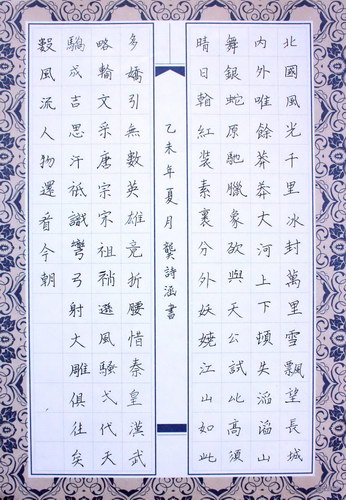 北國風光千里冰封萬里雪飄望長城
內外唯餘莽莽大河上下頓失滔滔山
舞銀蛇原馳臘象欲與天公試比高須
晴日看紅裝素裹分外妖嬈江山如此
多嬌引無數英雄競折腰惜秦皇漢武
略輸文采唐宗宋祖稍遜風騷弌代天
驕成吉思汗祇識彎弓射大雕俱往矣
數風流人物還看今朝
乙未年夏月龔詩涵書